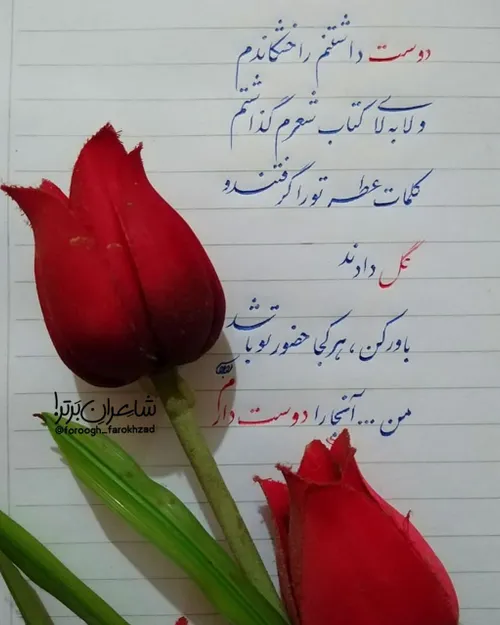 دوست داشتنم را خشکاندم
و لا به لای کتاب شعرم گذاشتم
کلمات عطر تو را گرفتند و
گل دادند
باور کن ، هر کجا حضور تو باشد
من ... آنجا را دوست دارم
شاعران برتر!
@foroogh_farokhzad